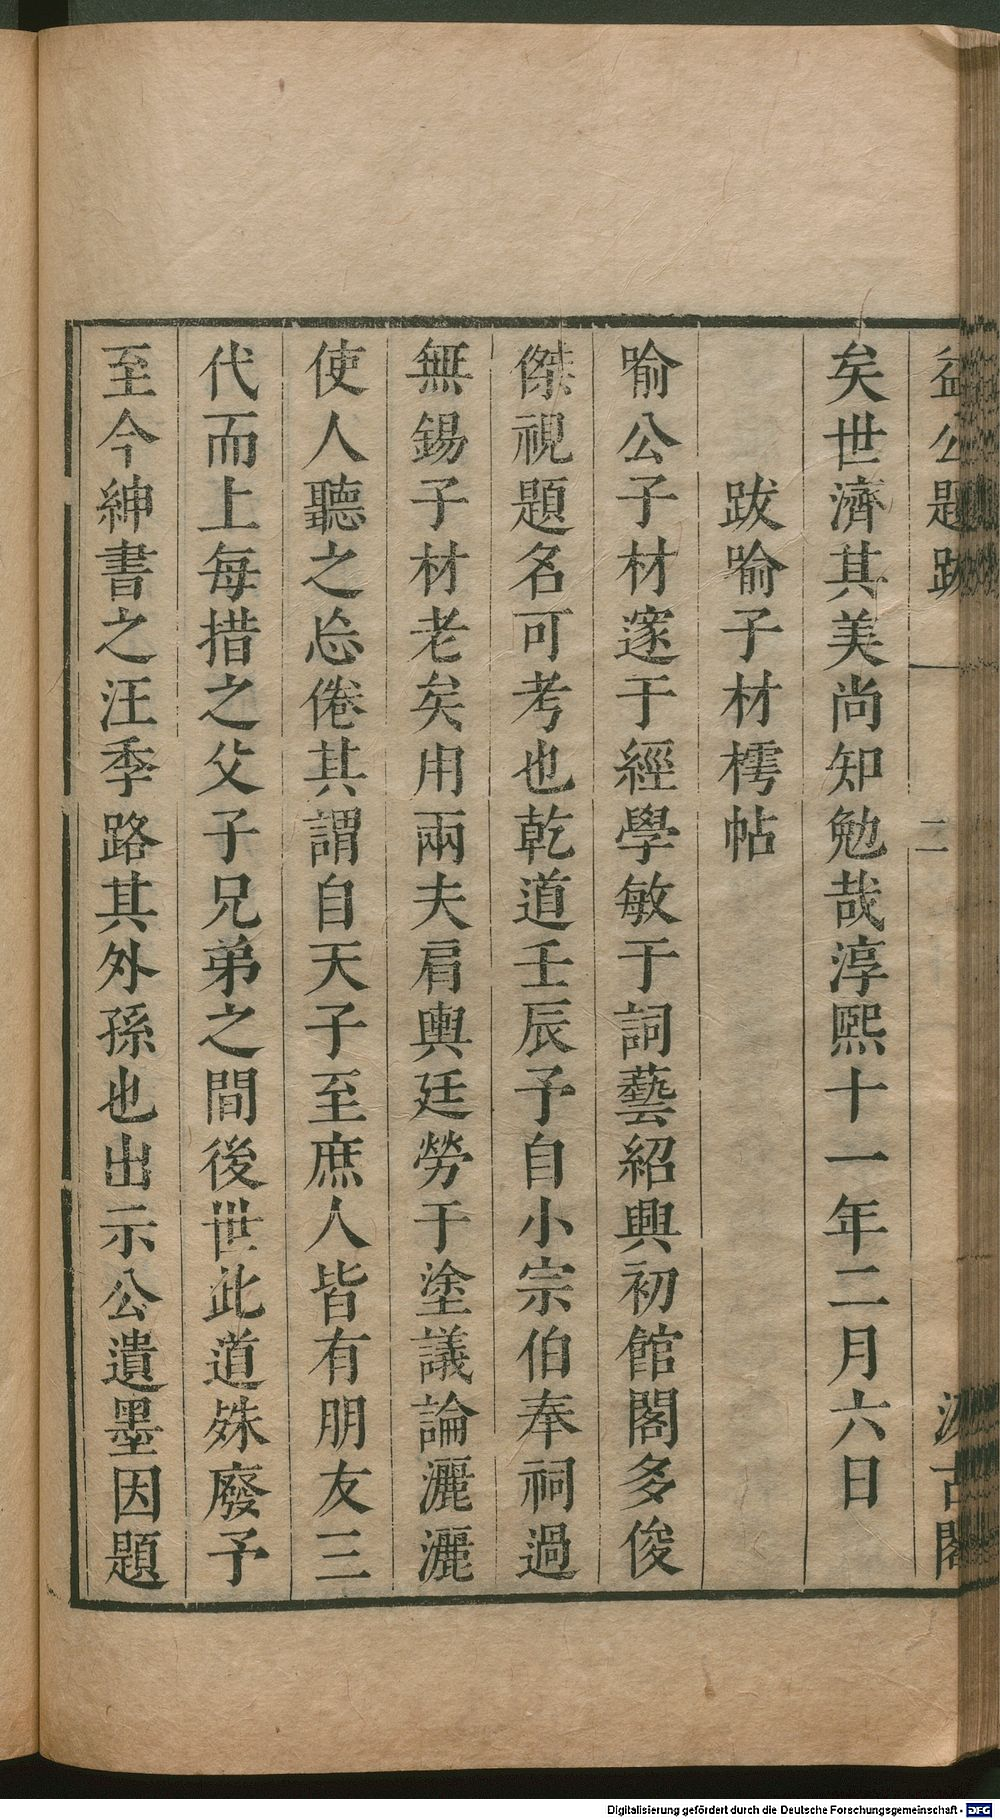 益公題跋 二 汲古閣
矣世濟其美尚知勉哉淳熙十一年二月六日
跋喻子材樗帖
喻公子材邃于經學敏于詞藝紹興初館閣多俊
傑視題名可考也乾道壬辰予自小宗伯奉祠過
無錫子材老矣用兩夫肩輿廷勞于塗議論灑灑
使人聽之忘倦其謂自天子至庶人皆有朋友三
代而上每措之父子兄弟之間後世此道殊廢予
至今紳書之汪季路其外孫也出示公遺墨因題
Digitalisierung gefördert durch die Deutsche Forschungsgemeinschaft - DFG